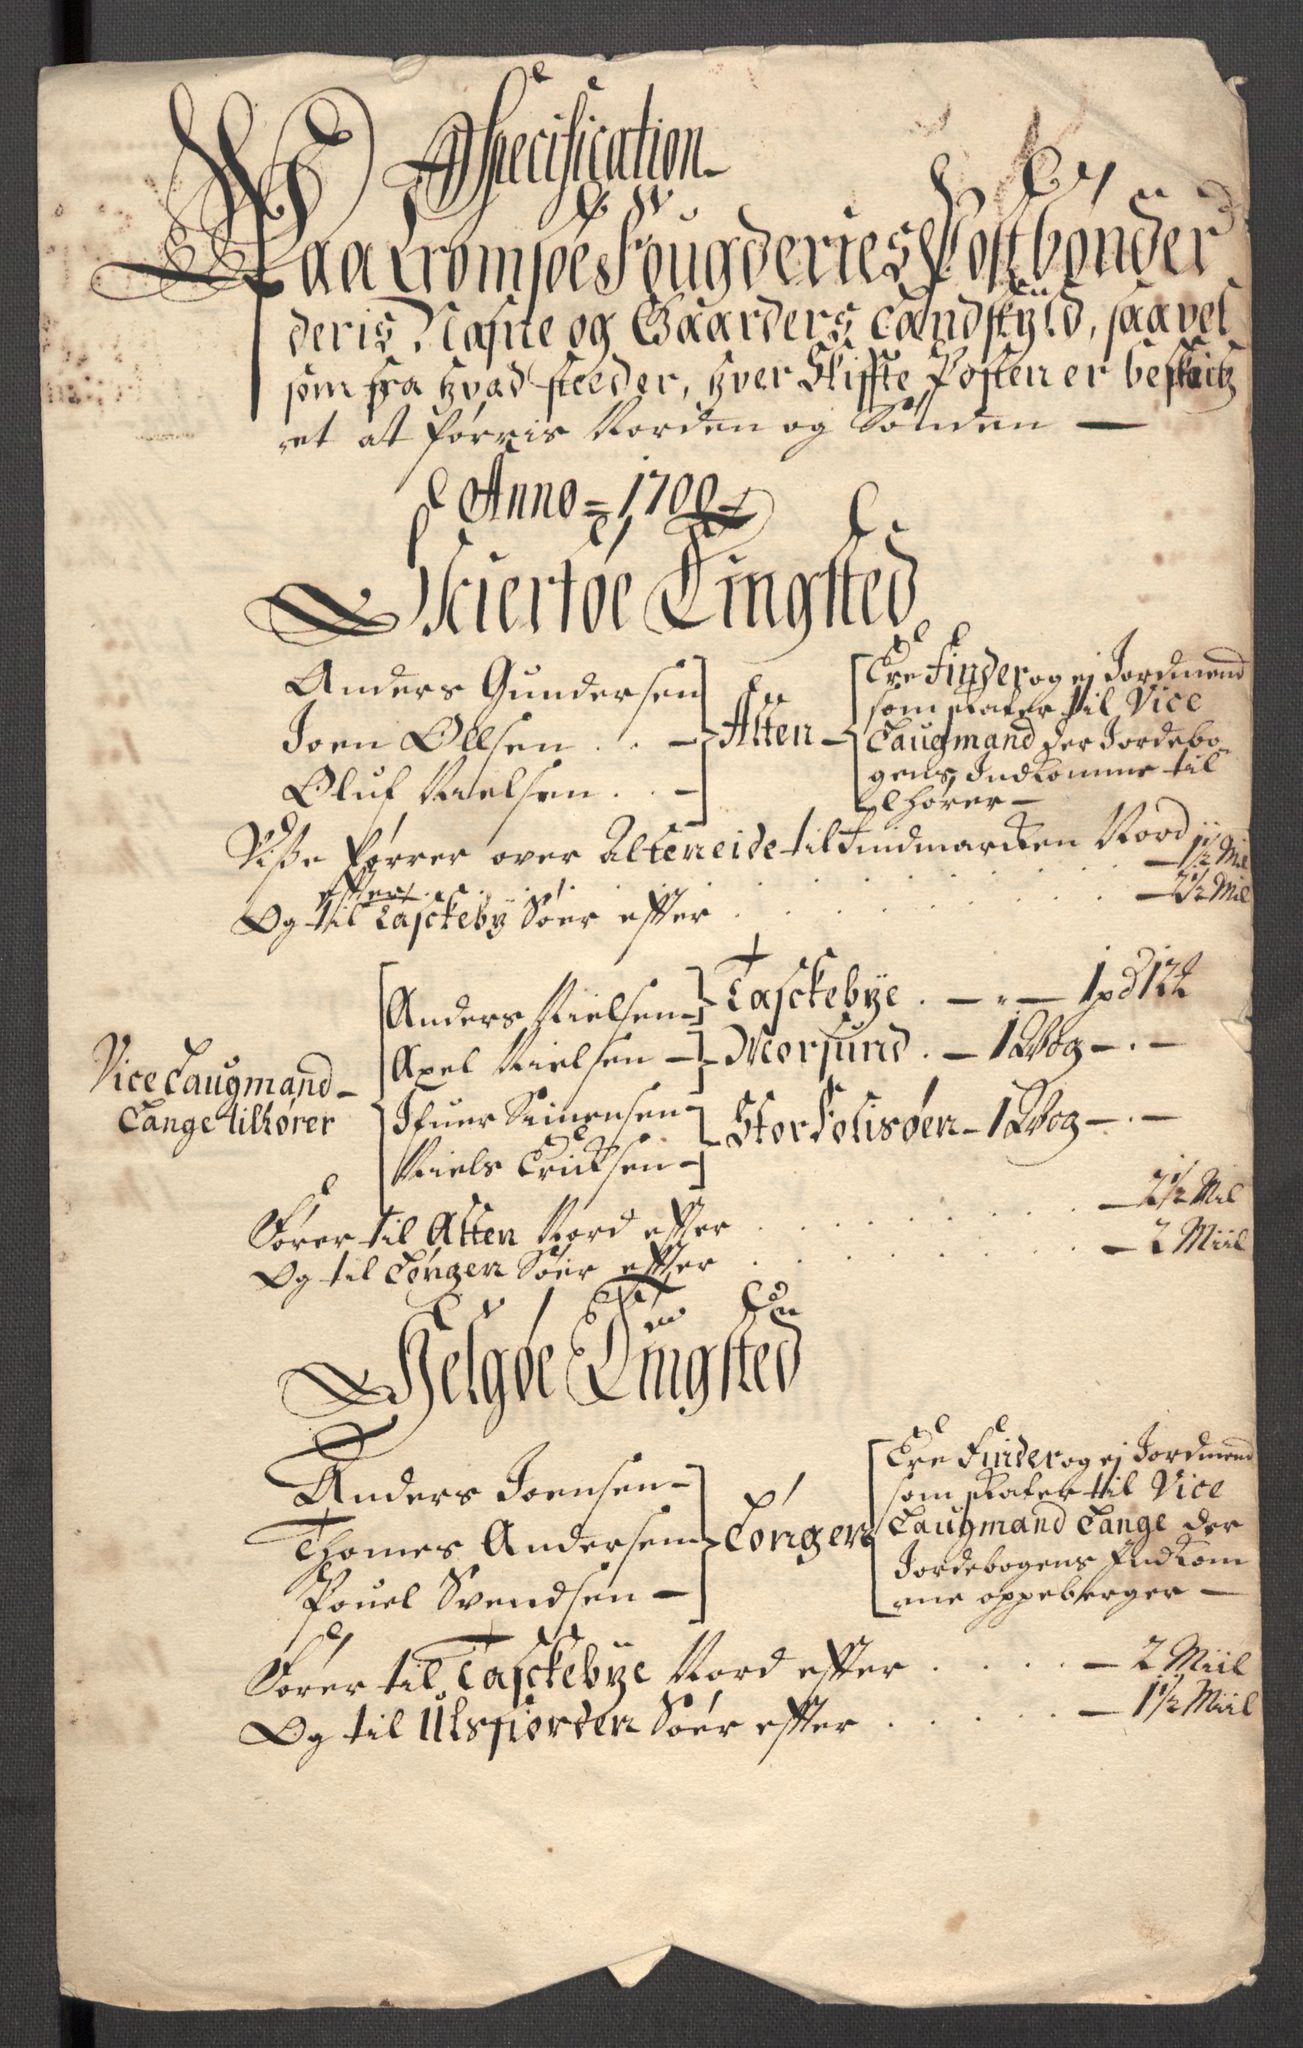 Specification
Paa Tromsøes Fougderies Postbønder
deris Nafne og Gaarders Landskyld, saavel
som fra hvad steder, hver Skiffte Posten er beskick
et at føris Norden og Sønden —
Anno = 1700
Skierføe Tingsted
Anders Gundersen
Joen Ollsen . . —
Oluf Nielsen . . —
Alten —
Ere Finder og ej Jordmend
som skater til Vice
Laugmand der Jordebo-
gens Indkomme til
hører —
Diße førrer over Alteneide til Findmarcken Nord
effter . . . — 1½ Mil
Og til Lasckeby Søer effter . . . — 2½ Mil
Vice Laugmand
Lange tilhører
Anders Nielsen — Lasckebye . — . — 1 pd 12 ℔
Axel Nielsen — Morsund . — 1 Vog — . —
Ifuer Simensen —
Niels Ericksen —
Stor Folisøen — 1 Vog — . —
Fører til Alten Nord effter . . . — 2½ Mil
Og til Løngen Søer effter . . . — 2 Miil
Helgøe Tingsted
Anders Joensen —
Thomes Andersen
Pouel Svendsen —
Løngen
Ere Finder og ej Jordmend
som skater til Vice
Laugmand Lange der
Jordebogens Indkom
me oppeberger —
Fører til Lasckebye Nord effter . . . . — 2 Miil
Og til Ulsfiorden Søer effter . . . . — 1½ Miil